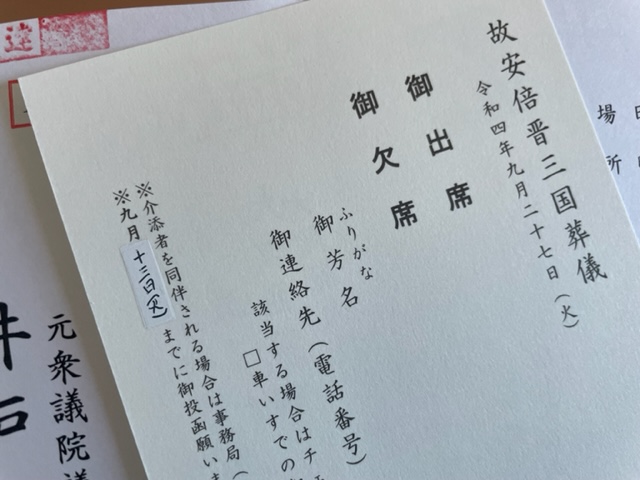 故安倍晋三国葬儀
令和四年九月二十七日(火)
御出席
御欠席
ふりがな
御芳名
御連絡先(電話番号)
該当する場合はチェ
□車いすでの
※介添者を同伴される場合は事務局(
※九月十三日(火)までに御投函願いま
元衆議院議
場
所
速